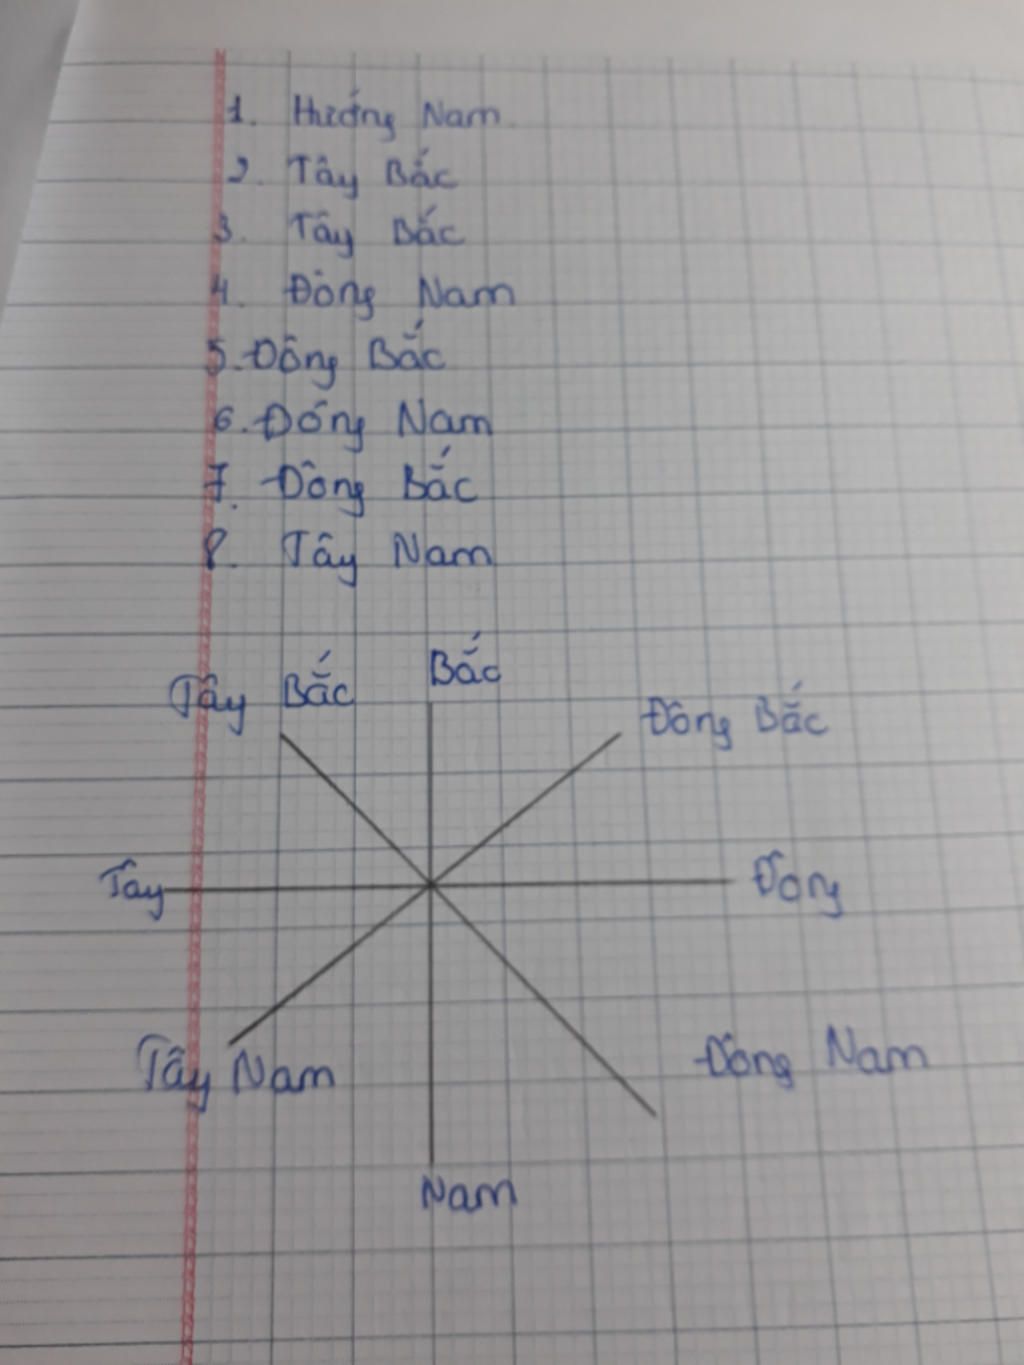 1. Hướng Nam
2. Tây Bắc
3. Tây Bắc
4. Đông Nam
5. Đông Bắc
6. Đông Nam
7. Đông Bắc
8. Tây Nam
Tây Bắc
Bắc
Đông Bắc
Tây
Đông
Tây Nam
Đông Nam
Nam